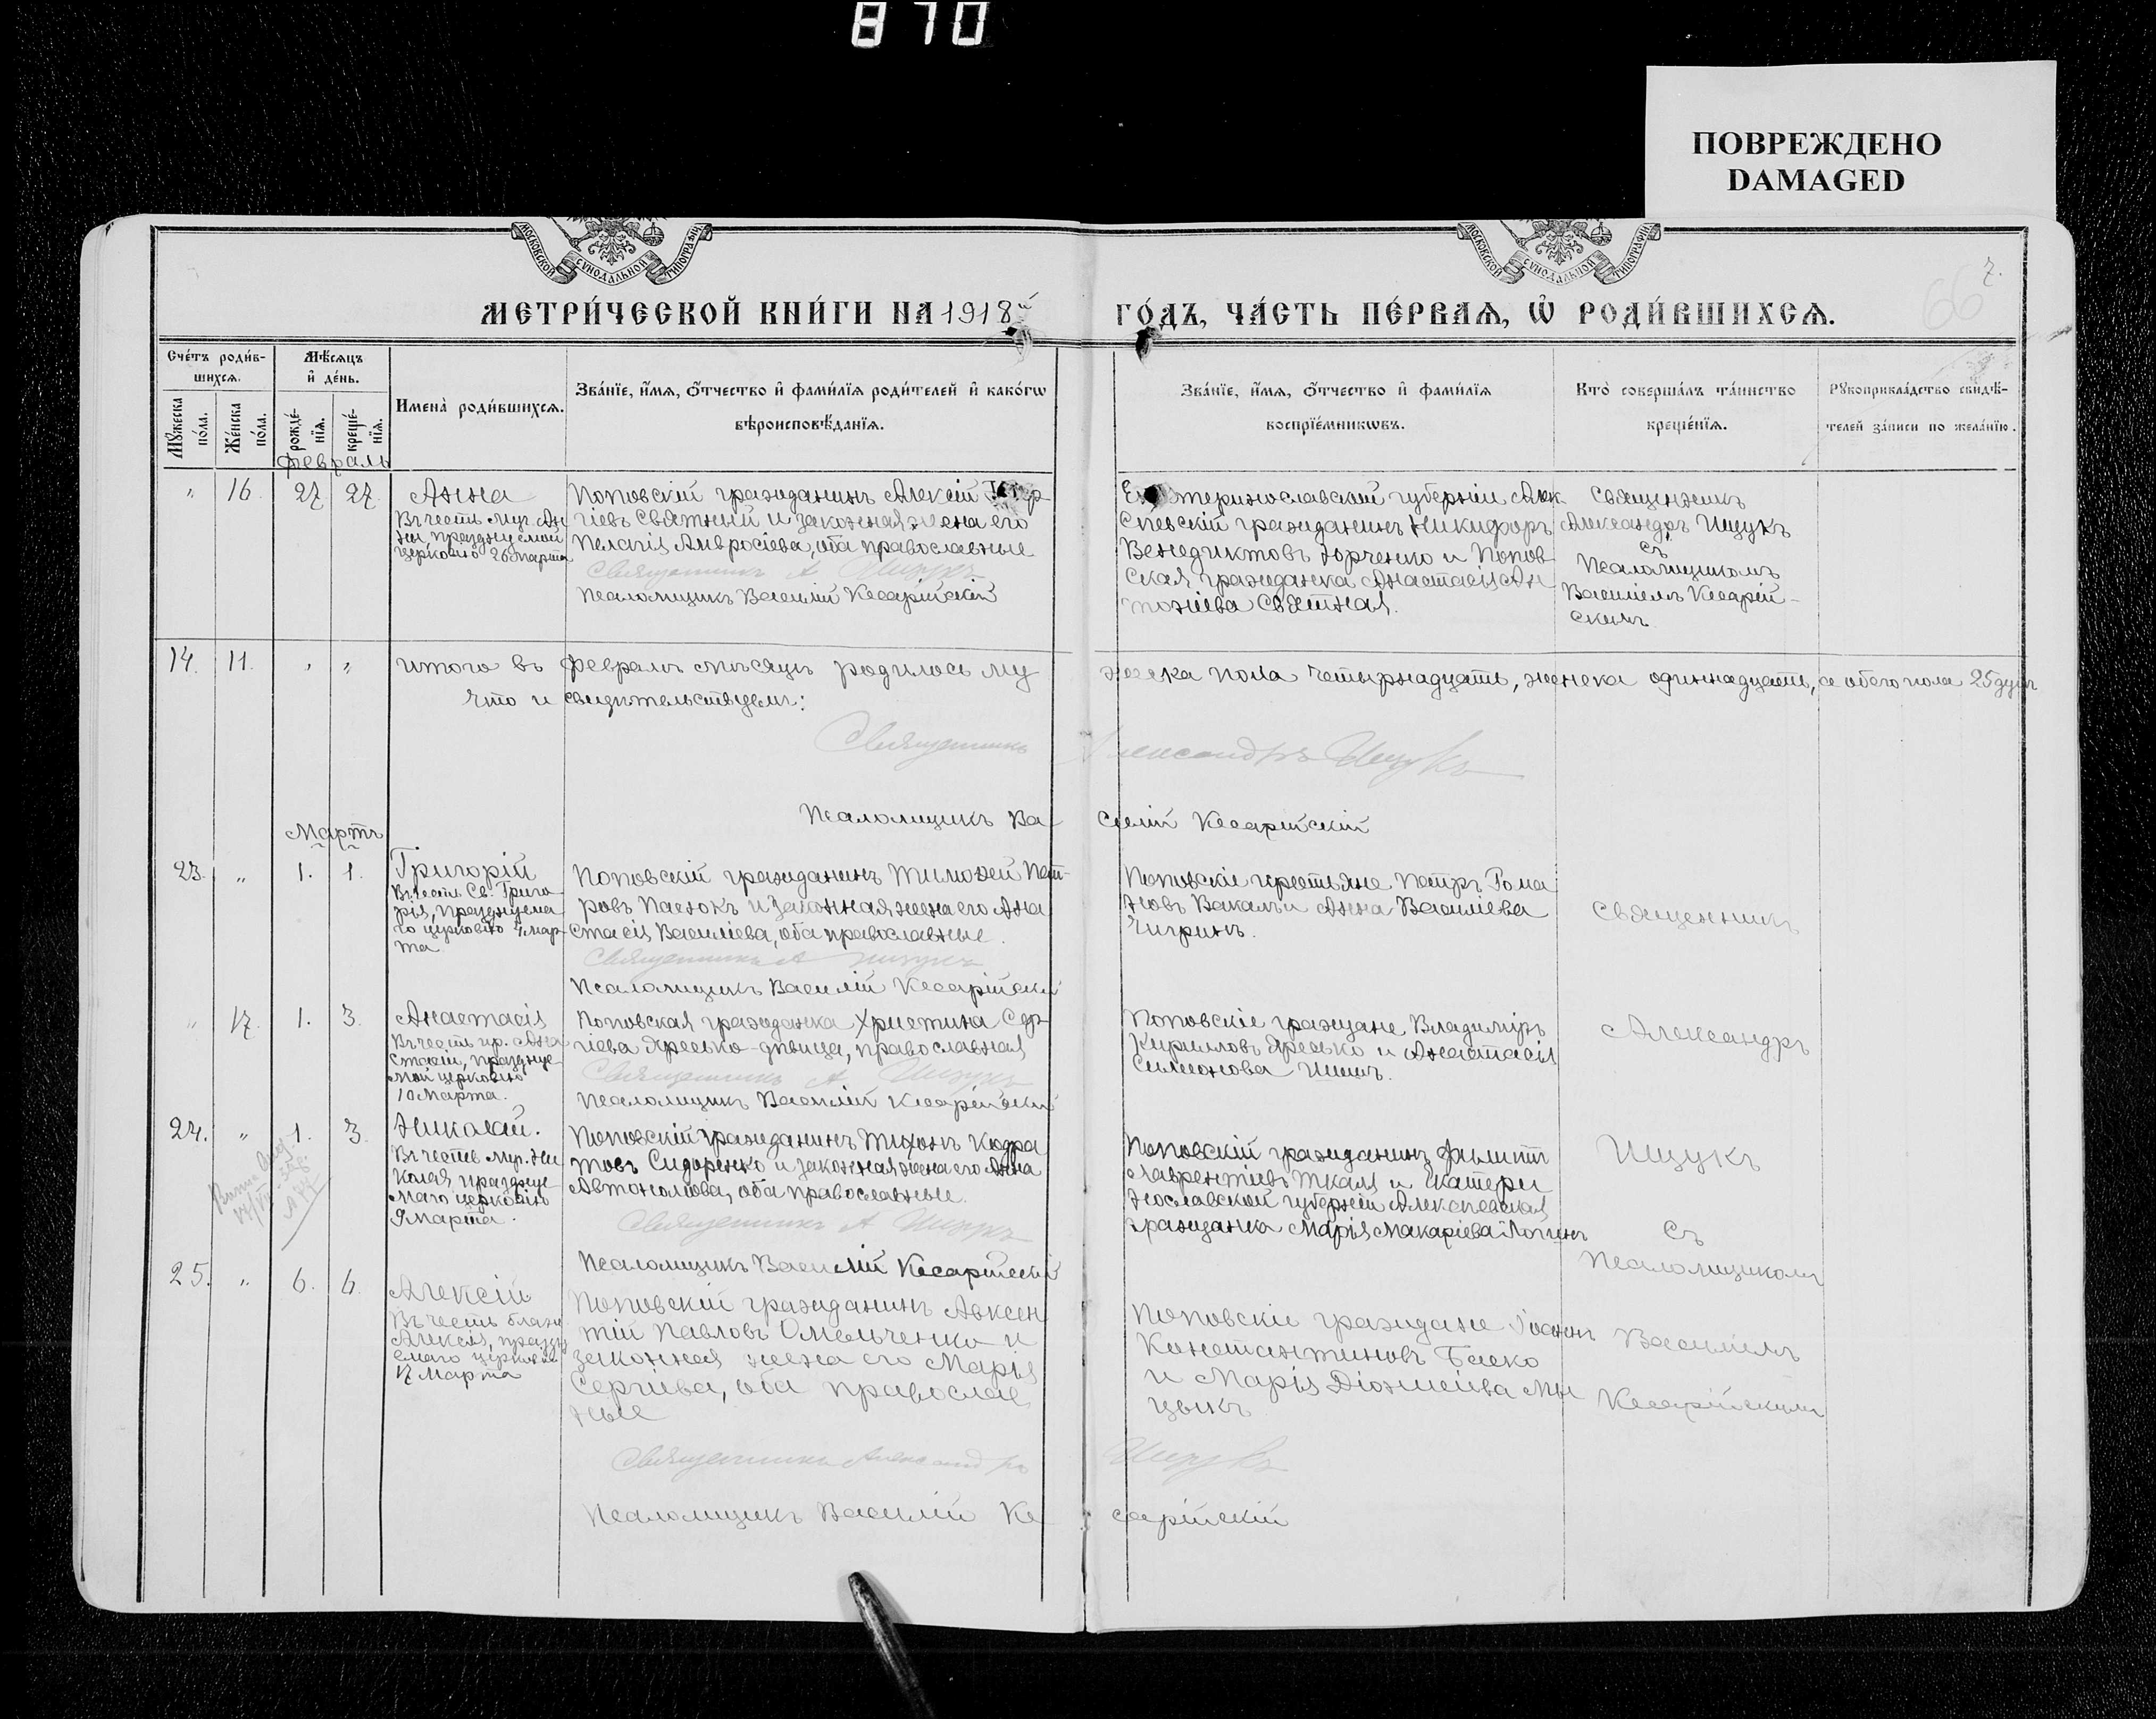 870
ПОВРЕЖДЕНО
DAMAGED
МОСКОВСКОЙ СѴНОДАЛЬНОЙ ТИПОГРАФІИ
МОСКОВСКОЙ СѴНОДАЛЬНОЙ ТИПОГРАФІИ
7.
66
МЕТРИ́ЧЕСКОЙ КНИ́ГИ НА 1918й
ГО́ДЪ, ЧА́СТЬ ПЕ́РВАЯ, Ѡ҆ РОДИ́ВШИХСЯ.
Сче́тъ роди́в-
шихся.
Мѣ́сяцъ
и҆ де́нь.
Мꙋ́жеска
по́ла.
Же́нска
по́ла.
рожде́-
нїя.
креще́-
нїя.
Имена̀ роди́вшихся.
Зва́нїе, и҆́мя, ѻ҆́тчество и҆ фами́лїя роди́телей и҆ како́гѡ
вѣроисповѣ́данїя.
Зва́нїе, и҆́мя, ѻ҆́тчество и҆ фами́лїя
воспрїе́мникѡвъ.
Кто̀ соверша́лъ та́инство
креще́нїя.
Рꙋкоприкла́дство свидѣ́-
телей за́писи по жела́нїю.
Февраль
" 16. 27 27. Анна
Въ честь муч. Ан
ны, празднуемой
церковію 26 Марта
Поповскій гражданинъ Алексій
гіевъ Святный и законная жена его
Пелагія Амвросіева, оба православные
Священникъ А Ищукъ
Псаломщикъ Василій Кесарійскій
Екатеринославской губерніи Алек
сіевскій гражданинъ Никифоръ
Венедиктовъ Юрченко и Попов
ская гражданка Анастасія Ан
тоніева Святная.
Священникъ
Александръ Ищукъ
съ
Псаломщикомъ
Василіемъ Кесарій-
скимъ
14. 11. " " Итого въ февралѣ мѣсяцѣ родилось му
жеска пола четырнадцать, женска одиннадцать, а обего пола 25 душъ
Что и свидѣтельствуемъ:
Священникъ Александръ Ищукъ
Псаломщикъ Ва
силій Кесарійскій
Мартъ
23. " 1. 1. Григорій
Въ честь Св. Григо
рія, празднуема
го церковію 4 мар-
та
Поповскій гражданинъ Тимоѳей Пет-
ровъ Пасюкъ и законная жена его Ана
стасія Василіева, оба православные.
Священникъ А Ищукъ
Псаломщикъ Василій Кесарійскій
Поповскіе крестьяне Петръ Рома
новъ Вакалъ и Анна Василіева
Чигринъ.
Священникъ
" 17. 1. 3. Анастасія
Въ честь пр. Ана
стасіи, празднуе-
мой церковію
10 Марта.
Поповская гражданка Христина Сер-
гіева Яресько-дѣвица, православная
Священникъ А Ищукъ
Псаломщикъ Василій Кесарійскій
Поповскіе граждане Владиміръ
Кирилловъ Яресько и Анастасія
Симонова
Александръ
24. " 1. 3. Николай.
Въ честь муч. Ни
колая празднуе
маго церковію
9 Марта.
Поповскій гражданинъ Тихонъ Кодра
товъ Сидоренко и законная жена его Анна
Автономова, оба православные.
Священникъ А Ищукъ
Псаломщикъ Василій Кесарійскій
Поповскій гражданинъ Филиппъ
Лаврентіевъ Ткаля и Екатери
нославской губерніи Алексіевская
гражданка Марія Макаріева
Ищукъ
съ
Псаломщикомъ
25. " 6. 6. Алексій
Въ честь блаж
Алексія, праздну
емаго церковію
17 Марта
Поповскій гражданинъ Авксен
тій Павловъ Омельченко и
законная жена его Марія
Сергіева, оба православ
ные
Поповскіе граждане Іоаннъ
Константиновъ Баско
и Марія Діонисіева Мы
цыкъ
Василіемъ
Кесарійскимъ
Священникъ Александръ
Ищукъ
Псаломщикъ Василій Ке
сарійскій